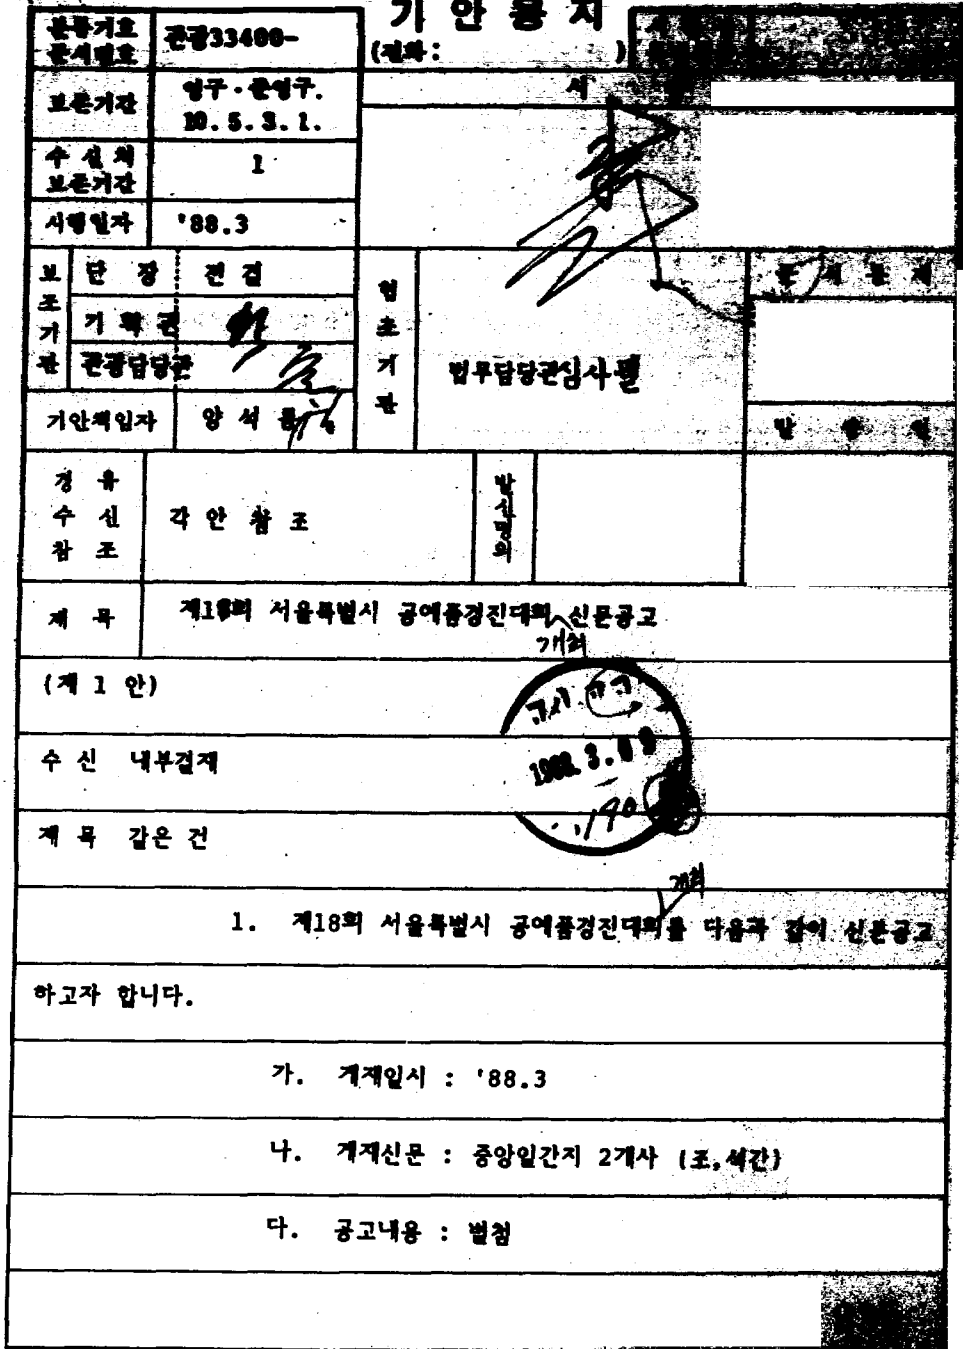 기 안 용 지
분류기호
문서번호
관광33400-
(전화: )
보존기간
영구·준영구.
10. 5. 3. 1.
수 신 처
보존기간
1
시행일자
'88.3
보조기관
단 장 전결
기 획 관
관광담당관
기안책임자
양 석
협조기관
법무담당관심사필
문 서 통 제
발 송 일
경 유
수 신
참 조
각 안 참 조
발신명의
제 목
제18회 서울특별시 공예품경진대회 신문공고
개최
(제 1 안)
수 신 내부결재
제 목 같은 건
1988. 3.
190
개최
1. 제18회 서울특별시 공예품경진대회를 다음과 같이 신문공고
하고자 합니다.
가. 게재일시 : '88.3
나. 게재신문 : 중앙일간지 2개사 (조,석간)
다. 공고내용 : 별첨